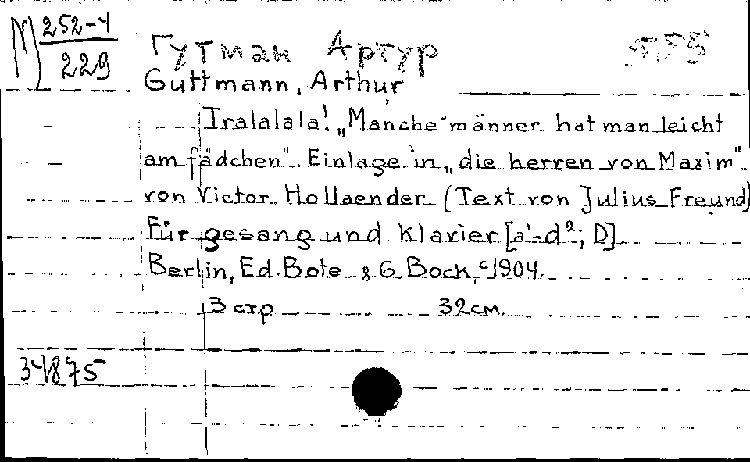 M 252-4
229
Гутман Артур
Guttmann, Arthur
Tralalala! „Manche männer hat man leicht
am fädchen". Einlage in „die herren von Maxim"
von Victor Hollaender (Text von Julius Freund)
Für gesang und Klavier [a'-d²; D]
Berlin, Ed. Bote & G. Bock, c1904.
3 стр 32см.
34875